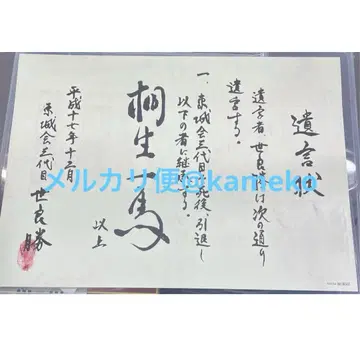 遺言状
遺言者 世良勝は次の通り
遺言する。
一、東城会三代目の死後、引退し
以下の者に継がせる。
桐生一馬
以上
平成十七年十二月
東城会三代目 世良 勝
メルカリ便@kameko